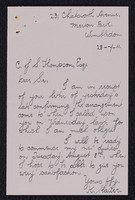 23, Chatsworth Avenue,
Merton Park
Wimbledon
28-7-11.
C J S Thompson Esq
Dear Sir,
I am in receipt
of your letter of yesterday's
date confirming the arrangement
come to when I called upon
you on Wednesday last for
which I am much obliged
I will be ready
to commence my new duties
on Tuesday August 8th, when
I hope to be able to give
satisfaction.
Yours ffy,